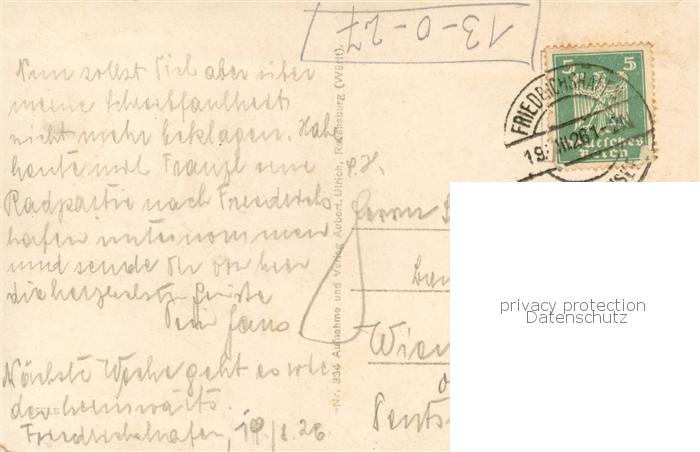 13-0-27
Nun sollst Dich aber über
meine Schreibfaulheit
nicht mehr beklagen. Habe
heute mit Franzl eine
Radpartie nach Friedrichs
hafen unternommen
und sende Dir von hier
die herzlichste Grüsse
Dein Hans
Nächste Woche geht es wie
der heimwärts.
Friedrichshafen, 19/8.26
Nr. 334 Aufnahme und Verlag Aubert, Ulrich, Ravensburg (Württ).
5 5
Deutsches
Reich
FRIEDRICHSHA
19. VIII.26 1-2N
Herrn
Wien
privacy protection
Datenschutz